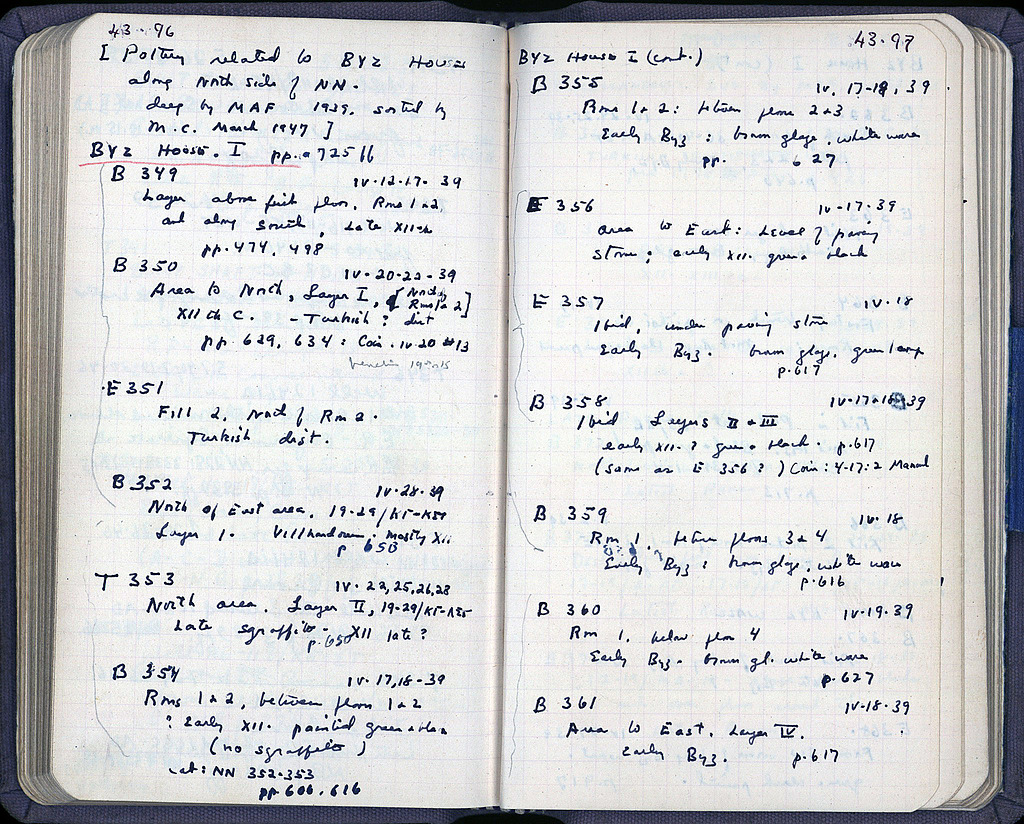 43-96
[ Pottery related to BYZ HOUSES
along North side of NN.
deeg by MAF 1939, sorted by
M.C. March 1947 ]
BYZ HOUSE. I pp. 725 ff
B 349 IV-12-17-39
Layer above first floor, Rms 1+2
and along south, Late XII-th
pp. 474, 498
B 350 IV-20-22-39
Area to North, Layer I, [North of Rms 1+2]
XII th C. - Turkish? dist
pp. 629, 634: Coin. IV-20 #13
E 351
Fill 2, North of Rm 2.
Turkish dist.
B 352 IV-28-39
North of East area, 19-29/KΓ-KST
Layer 1. mostly XII
p 650
T 353 IV-22,25,26,28
North area, Layer II, 19-29/KΓ-KST
Late sgraffito - XII late?
p. 650
B 354 IV-17,18-39
Rms 1+2, between floors 1+2
? Early XII. painted green+black
(no sgraffito)
cat: NN 352-353
pp. 600, 616
43-97
BYZ HOUSE I (cont.)
B 355 IV, 17-18, 39
Rms 1+2: between floors 2+3
Early Byz: brown glaze, white ware
pp. 627
E 356 IV-17-39
Area to East: Level of paving
stone; early XII. green + black
E 357 IV-18
Ibid, under paving stone
Early Byz. brown glaze, green lamp
p. 617
B 358 IV-17+18-39
Ibid Layers II + III
early XII? green + black. p. 617
(same as E 356?) Coin: 4-17:2 Manuel
B 359 IV-18
Rm 1. between floors 3+4
Early Byz: brown glaze, white ware
p. 616
B 360 IV-19-39
Rm 1, below floor 4
Early Byz. brown gl. white ware
p. 627
B 361 IV-18-39
Area to East, Layer IV.
Early Byz. p. 617